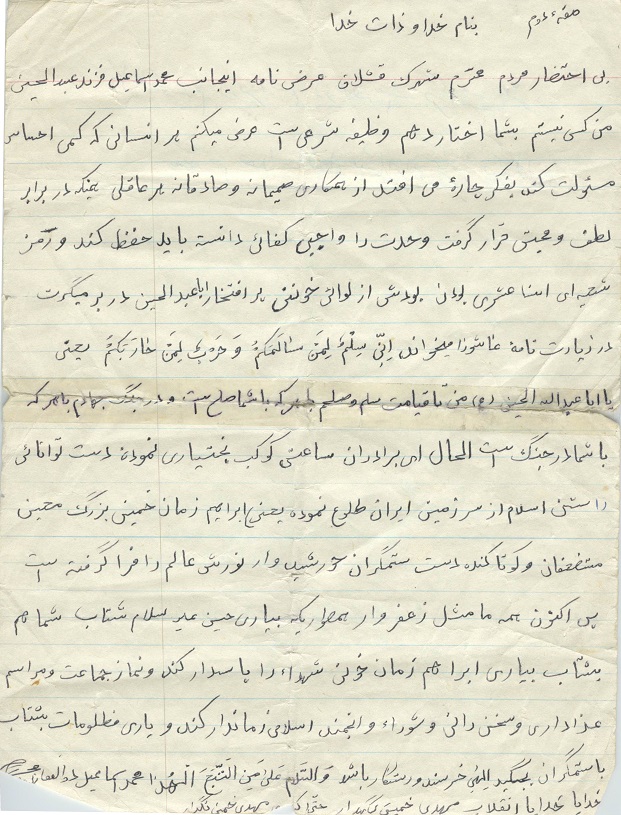 صفحه دوم
بنام خدا و ذات خدا
بی احتضار مردم محترم شهرک قشلاق عرض نامه اینجانب محمد اسماعیل فرزند عبدالحسین
من کسی نیستم بشما اختار دهم وظیفه شرعی ست عرض میکنم هر انسانی که کمی احساس
مسئولت کند بفکر چارهٔ می افتد از همکاری صمیمانه و صادقانه هر عاقلی همینکه در برابر
لطف و محبتی قرار گرفت وحدت را واجبی کفائی دانسته باید حفظ کند و رمز
شعیه ای اسنا عشری بودن از لوائی خونین پر افتخار اباعبدالحسین در بر میگرت
در زیارت نامهٔ عاشورا میخواند اِنّی سِلْمٌ لِمَن سالَمَکُمْ وَ حَرْبٌ لِمَن حارَبَکُمْ یعنی
یا ابا عبدالله الحسین من تا قیامت سلم و صلحم بهر که با شما صلح ست و در جنگ جهادم با هر که
با شما در جنگ ست الحال ای برادران ساعتی کوکب بختیاری نموده دست توانائی
راستین اسلام از سر زمین ایران طلوع نموده یعنی ابراهیم زمان خمینی بزرگ معین
مستضعفان و کوتا کننده دست ستمگران خورشید وار نورش عالم را فرا گرفته ست
پس اکنون همه ما مثل زعفر وار همطوریکه بیاری حسین علیه سلام شتاب شما هم
بشتاب بیاری ابراهم زمان خون شهداء را پاسدار کند و نماز جماعت و مراسم
عذاداری و سخن رانی و شوراء و انجمند اسلامی زماندار کند و یاری مظلومات بشتاب
با ستمگران بجنگید الهی خرسند و رستگار باشد وَالسَّلام عَلی مَنِ اتَّبَعَ الْهُدا محمد اسماعیل
خدایا خدایا تا انقلاب مهدی خمینی نگهدار